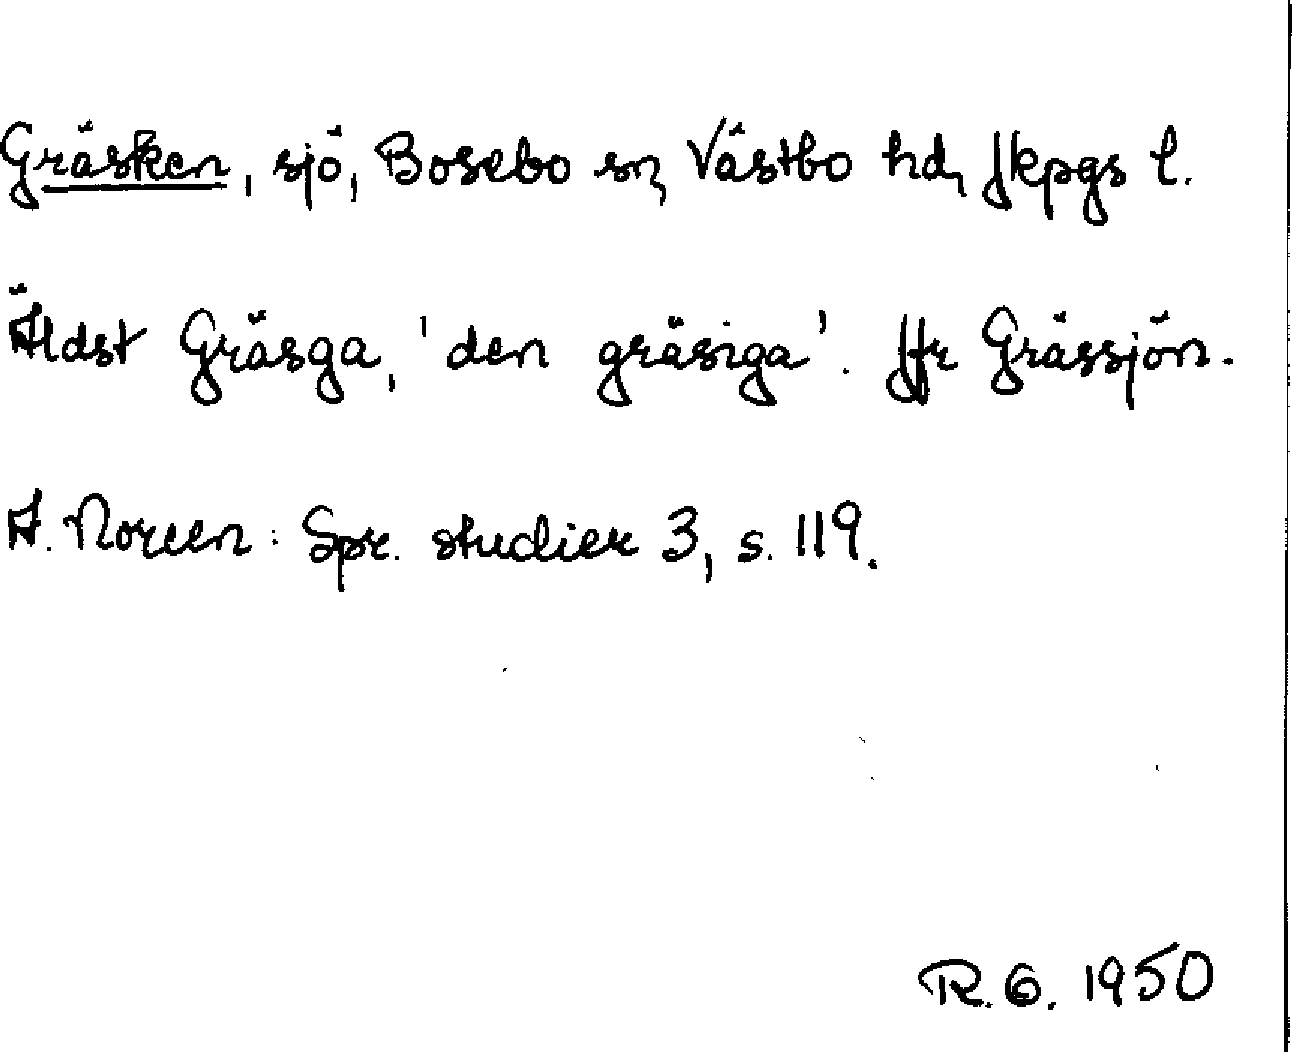 Gräsken, sjö, Bosebo sn, Västbo hd, Jkpgs l.
Äldst Gräsga, 'den gräsiga'. Jfr Grässjön.
A. Noreen: Spr. studier 3, s. 119.
R.G. 1950